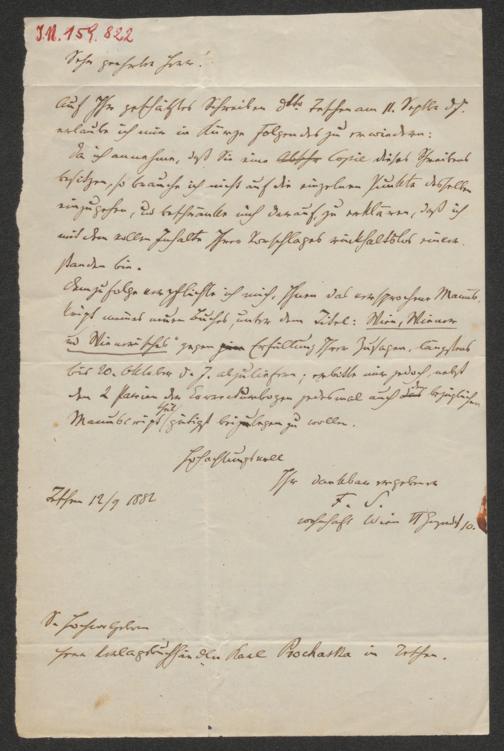 J.N. 159.822
Sehr geehrter Herr!
Auf Ihr geschätztes Schreiben dto Teschen am 11. Septbr d. J.
erlaube ich mir in Kürze Folgendes zu erwiedern:
Da ich annehme, daß Sie eine Abschr Copie dieses Schreibens
besitzen, so brauche ich nicht auf die einzelnen Punkte desselben
einzugehen, und beschränke mich darauf zu erklären, daß ich
mit dem vollen Inhalte Ihres Vorschlages rückhaltslos einver-
standen bin.
Demzufolge verpflichte ich mich, Ihnen das versprochene Manus-
kript meines neuen Buches, unter dem Titel: „Wien, Wiener
und Wienerisches" gegen Erfüllung Ihrer Zusagen, längstens
bis 20. Oktober d. J. abzuliefern; erbitte mir jedoch, nebst
den 2 Partien der Correcturbogen jedesmal auch das bezüglichen
Manuscript gütigst beizulegen zu wollen.
Hochachtungsvoll
Ihr dankbar ergebener
F. S.
wohnhaft Wien 10.
Teschen 12/9 1882
Sr Hochwolgeboren
Herrn Verlagsbuchhändler Karl Prochaska in Teschen.